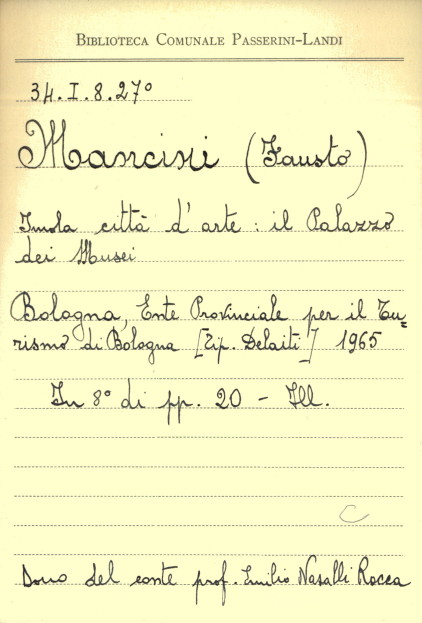 BIBLIOTECA COMUNALE PASSERINI-LANDI
34.I.8.27°
Mancini (Fausto)
Imola città d'arte: il Palazzo
dei Musei
Bologna, Ente Provinciale per il Tu=
rismo di Bologna [Tip. Delaiti] 1965
In 8° di pp. 20 - Ill.
C
Dono del conte prof. Emilio Nasalli Rocca